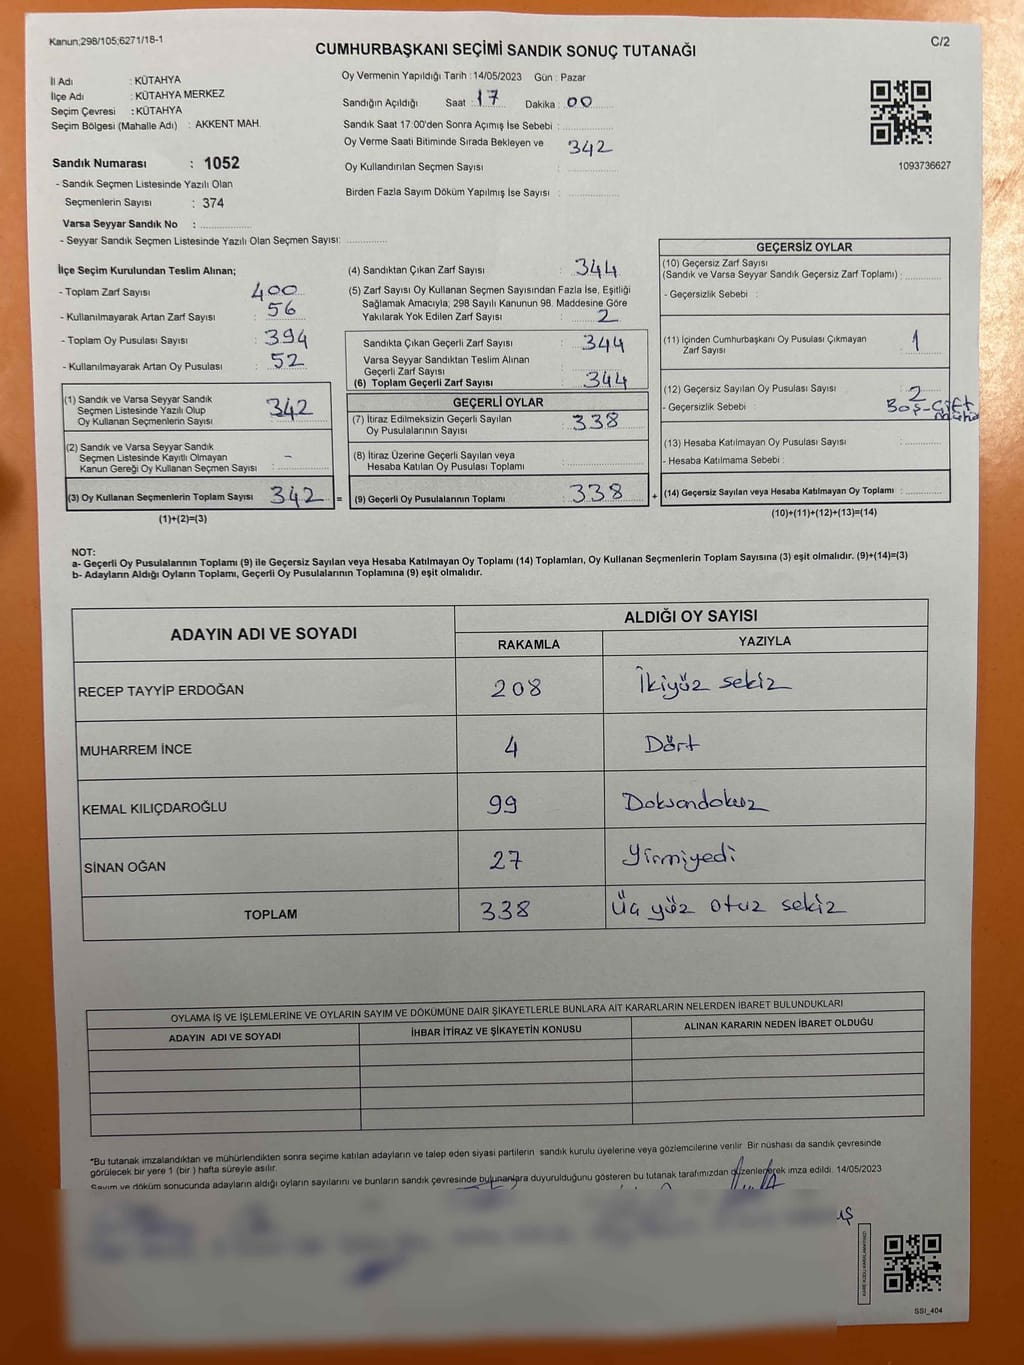 Kanun;298/105;6271/18-1
C/2
CUMHURBAŞKANI SEÇİMİ SANDIK SONUÇ TUTANAĞI
İl Adı : KÜTAHYA
İlçe Adı : KÜTAHYA MERKEZ
Seçim Çevresi : KÜTAHYA
Seçim Bölgesi (Mahalle Adı) : AKKENT MAH.
Oy Vermenin Yapıldığı Tarih : 14/05/2023 Gün : Pazar
Sandığın Açıldığı Saat : 17 Dakika : 00
Sandık Saat 17:00'den Sonra Açımış İse Sebebi :
Oy Verme Saati Bitiminde Sırada Bekleyen ve 342
Oy Kullandırılan Seçmen Sayısı :
Birden Fazla Sayım Döküm Yapılmış İse Sayısı :
1093736627
Sandık Numarası : 1052
- Sandık Seçmen Listesinde Yazılı Olan
Seçmenlerin Sayısı : 374
Varsa Seyyar Sandık No :
- Seyyar Sandık Seçmen Listesinde Yazılı Olan Seçmen Sayısı:
İlçe Seçim Kurulundan Teslim Alınan;
- Toplam Zarf Sayısı : 400
- Kullanılmayarak Artan Zarf Sayısı : 56
- Toplam Oy Pusulası Sayısı : 394
- Kullanılmayarak Artan Oy Pusulası : 52
(1) Sandık ve Varsa Seyyar Sandık
Seçmen Listesinde Yazılı Olup
Oy Kullanan Seçmenlerin Sayısı : 342
(2) Sandık ve Varsa Seyyar Sandık
Seçmen Listesinde Kayıtlı Olmayan
Kanun Gereği Oy Kullanan Seçmen Sayısı : -
(3) Oy Kullanan Seçmenlerin Toplam Sayısı 342 =
(1)+(2)=(3)
(4) Sandıktan Çıkan Zarf Sayısı : 344
(5) Zarf Sayısı Oy Kullanan Seçmen Sayısından Fazla İse, Eşitliği
Sağlamak Amacıyla; 298 Sayılı Kanunun 98. Maddesine Göre
Yakılarak Yok Edilen Zarf Sayısı : 2
Sandıkta Çıkan Geçerli Zarf Sayısı : 344
Varsa Seyyar Sandıktan Teslim Alınan
Geçerli Zarf Sayısı :
(6) Toplam Geçerli Zarf Sayısı : 344
GEÇERLİ OYLAR
(7) İtiraz Edilmeksizin Geçerli Sayılan
Oy Pusulalarının Sayısı : 338
(8) İtiraz Üzerine Geçerli Sayılan veya
Hesaba Katılan Oy Pusulası Toplamı :
(9) Geçerli Oy Pusulalarının Toplamı : 338 +
GEÇERSİZ OYLAR
(10) Geçersiz Zarf Sayısı
(Sandık ve Varsa Seyyar Sandık Geçersiz Zarf Toplamı) :
- Geçersizlik Sebebi :
(11) İçinden Cumhurbaşkanı Oy Pusulası Çıkmayan
Zarf Sayısı : 1
(12) Geçersiz Sayılan Oy Pusulası Sayısı : 2
- Geçersizlik Sebebi : Boş-Çift
(13) Hesaba Katılmayan Oy Pusulası Sayısı :
- Hesaba Katılmama Sebebi :
(14) Geçersiz Sayılan veya Hesaba Katılmayan Oy Toplamı :
(10)+(11)+(12)+(13)=(14)
NOT:
a- Geçerli Oy Pusulalarının Toplamı (9) ile Geçersiz Sayılan veya Hesaba Katılmayan Oy Toplamı (14) Toplamları, Oy Kullanan Seçmenlerin Toplam Sayısına (3) eşit olmalıdır. (9)+(14)=(3)
b- Adayların Aldığı Oyların Toplamı, Geçerli Oy Pusulalarının Toplamına (9) eşit olmalıdır.
ADAYIN ADI VE SOYADI
ALDIĞI OY SAYISI
RAKAMLA YAZIYLA
RECEP TAYYİP ERDOĞAN 208 İkiyüz sekiz
MUHARREM İNCE 4 Dört
KEMAL KILIÇDAROĞLU 99 Doksandokuz
SİNAN OĞAN 27 Yirmiyedi
TOPLAM 338 Üç yüz otuz sekiz
OYLAMA İŞ VE İŞLEMLERİNE VE OYLARIN SAYIM VE DÖKÜMÜNE DAİR ŞİKAYETLERLE BUNLARA AİT KARARLARIN NELERDEN İBARET BULUNDUKLARI
ADAYIN ADI VE SOYADI İHBAR İTİRAZ VE ŞİKAYETİN KONUSU ALINAN KARARIN NEDEN İBARET OLDUĞU
*Bu tutanak imzalandıktan ve mühürlendikten sonra seçime katılan adayların ve talep eden siyasi partilerin sandık kurulu üyelerine veya gözlemcilerine verilir. Bir nüshası da sandık çevresinde
görülecek bir yere 1 (bir ) hafta süreyle asılır.
Sayım ve döküm sonucunda adayların aldığı oyların sayılarını ve bunların sandık çevresinde bulunanlara duyurulduğunu gösteren bu tutanak tarafımızdan düzenlenerek imza edildi. 14/05/2023
SSI_404